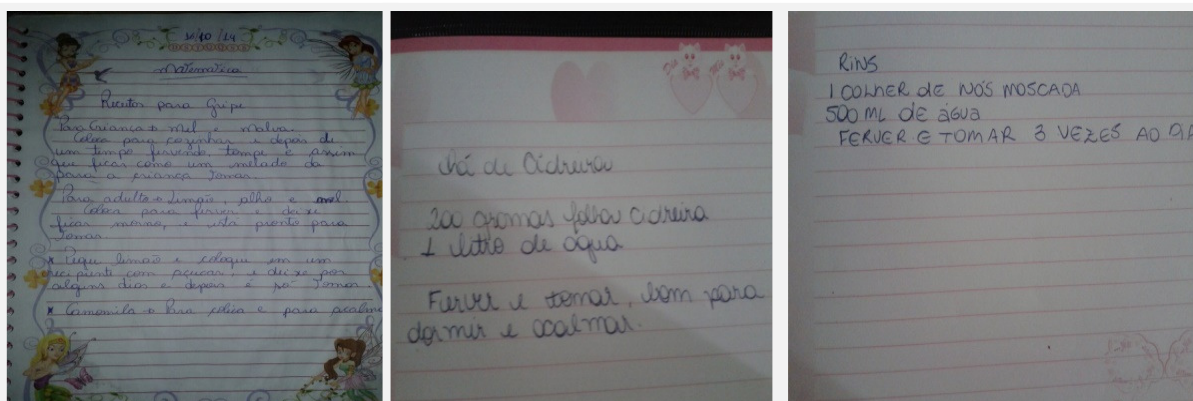 30/10/14
Matemática
Receitas para Gripe
Para Criança → Mel e Malva.
Coloca para cozinhar e depois de
um tempo fervendo, tampe e assim
que ficar como um melado da
para a criança tomar.
Para adulto → Limão, alho e mel.
Coloca para ferver e deixe
ficar morno, e está pronto para
tomar.
* Pegue limão e coloque em um
recipiente com açucar, e deixe por
alguns dias e depois é só tomar
* Camomila → Para colica e para acalma
chá de Cidreira
200 gramas folha cidreira
1 litro de agua
Ferver e tomar, bom para
dormir e acalmar.
RINS
1 COLHER DE NÓS MOSCADA
500 ML DE ÁGUA
FERVER E TOMAR 3 VEZES AO DIA